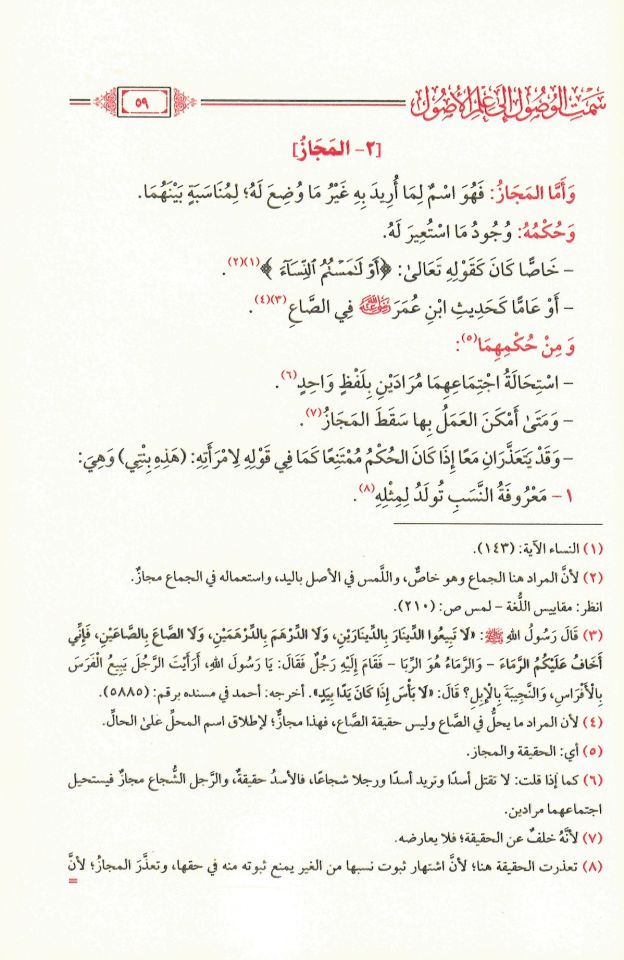 سمت الوصول إلى علم الأصول
٥٩
[٢- المَجَازُ]
وَأَمَّا المَجَازُ: فَهُوَ اسْمٌ لِمَا أُرِيدَ بِهِ غَيْرُ مَا وُضِعَ لَهُ؛ لِمُنَاسَبَةٍ بَيْنَهُمَا.
وَحُكْمُهُ: وُجُودُ مَا اسْتُعِيرَ لَهُ.
- خَاصًّا كَانَ كَقَوْلِهِ تَعَالَىٰ: ﴿أَوْ لَٰمَسْتُمُ ٱلنِّسَآءَ﴾(١)(٢).
- أَوْ عَامًّا كَحَدِيثِ ابْنِ عُمَرَ رَضِيَ اللَّهُ عَنْهُ فِي الصَّاعِ(٣)(٤).
وَمِنْ حُكْمِهِمَا(٥):
- اسْتِحَالَةُ اجْتِمَاعِهِمَا مُرَادَيْنِ بِلَفْظٍ وَاحِدٍ(٦).
- وَمَتَىٰ أَمْكَنَ العَمَلُ بِها سَقَطَ المَجَازُ(٧).
- وَقَدْ يَتَعَذَّرَانِ مَعًا إِذَا كَانَ الحُكْمُ مُمْتَنِعًا كَمَا فِي قَوْلِهِ لِامْرَأَتِهِ: (هَذِهِ بِنْتِي) وَهِيَ:
١- مَعْرُوفَةُ النَّسَبِ تُولَدُ لِمِثْلِهِ(٨).
(١) النساء الآية: (١٤٣).
(٢) لأنَّ المراد هنا الجماع وهو خاصٌّ، واللَّمس في الأصل باليد، واستعماله في الجماع مجازٌ.
انظر: مقاييس اللُّغة - لمس ص: (٢١٠).
(٣) قَالَ رَسُولُ اللهِ ﷺ: «لَا تَبِيعُوا الدِّينَارَ بِالدِّينَارَيْنِ، وَلَا الدِّرْهَمَ بِالدِّرْهَمَيْنِ، وَلَا الصَّاعَ بِالصَّاعَيْنِ، فَإِنِّي
أَخَافُ عَلَيْكُمُ الرَّمَاءَ - وَالرَّمَاءُ هُوَ الرِّبَا - فَقَامَ إِلَيْهِ رَجُلٌ فَقَالَ: يَا رَسُولَ اللهِ، أَرَأَيْتَ الرَّجُلَ يَبِيعُ الْفَرَسَ
بِالْأَفْرَاسِ، وَالنَّجِيبَةَ بِالْإِبِلِ؟ قَالَ: «لَا بَأْسَ إِذَا كَانَ يَدًا بِيَدٍ». أخرجه: أحمد في مسنده برقم: (٥٨٨٥).
(٤) لأن المراد ما يحلُّ في الصَّاع وليس حقيقة الصَّاع، فهذا مجازٌ؛ لإطلاق اسم المحلِّ علىٰ الحالِّ.
(٥) أي: الحقيقة والمجاز.
(٦) كما إذا قلت: لا تقتل أسدًا وتريد أسدًا ورجلا شجاعًا، فالأسدُ حقيقةٌ، والرَّجل الشُّجاع مجازٌ فيستحيل
اجتماعهما مرادين.
(٧) لأنَّهُ خلفٌ عن الحقيقة؛ فلا يعارضه.
(٨) تعذرت الحقيقة هنا؛ لأنَّ اشتهار ثبوت نسبها من الغير يمنع ثبوته منه في حقها، وتعذَّرَ المجازُ؛ لأنَّ
=